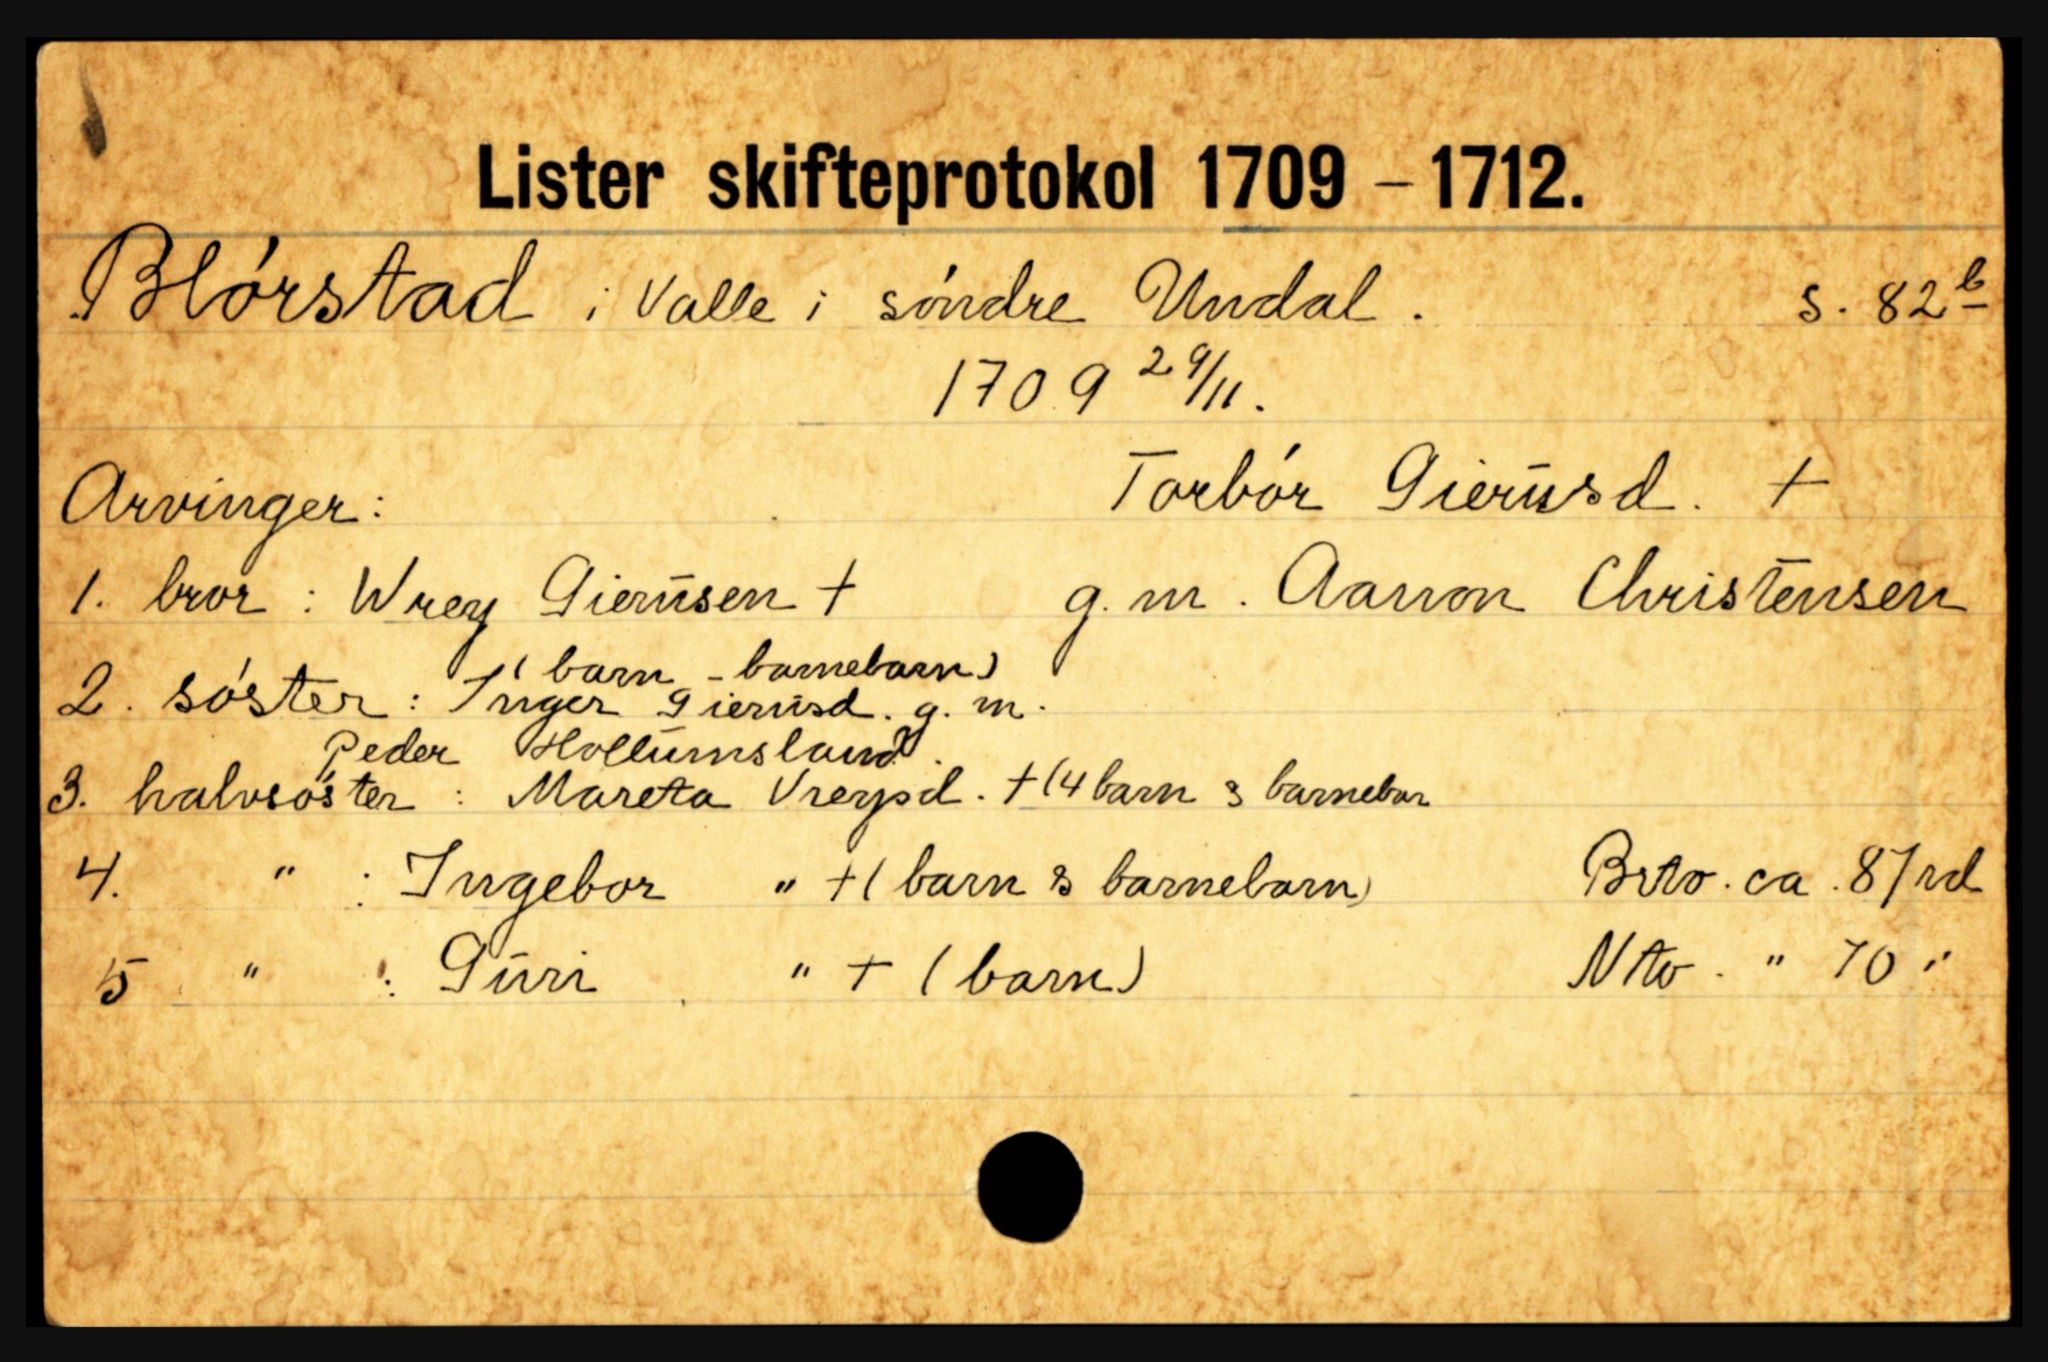 Lister skifteprotokol 1709 – 1712.
Blórstad i Valle i sóndre Undal. s. 82 b
1709 29/11.
Arvinger: Torbór Gierŭsd. †
1. bror : Wrey Gierŭsen † g. m. Aanon Christensen
( barn - barnebarn)
2. sóster : Inger Gierŭsd. g. m.
Peder Hollŭmsland.
3. halvsóster : Mareta Vreysd. † (4 barn & barnebar
4. " : Ingebor " † ( barn & barnebarn) Brto. ca. 87 rd
5 " : Gŭri " † ( barn) Nto. " 70 "